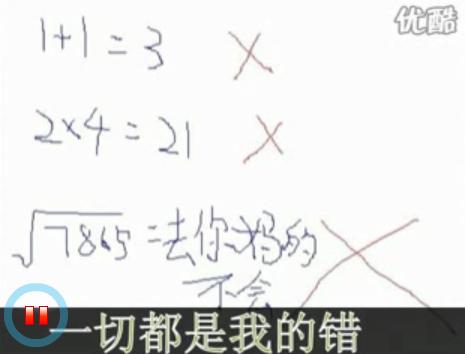 优酷
1+1=3 X
2×4=21 X
√7865=去你妈的 X
不会
一切都是我的错